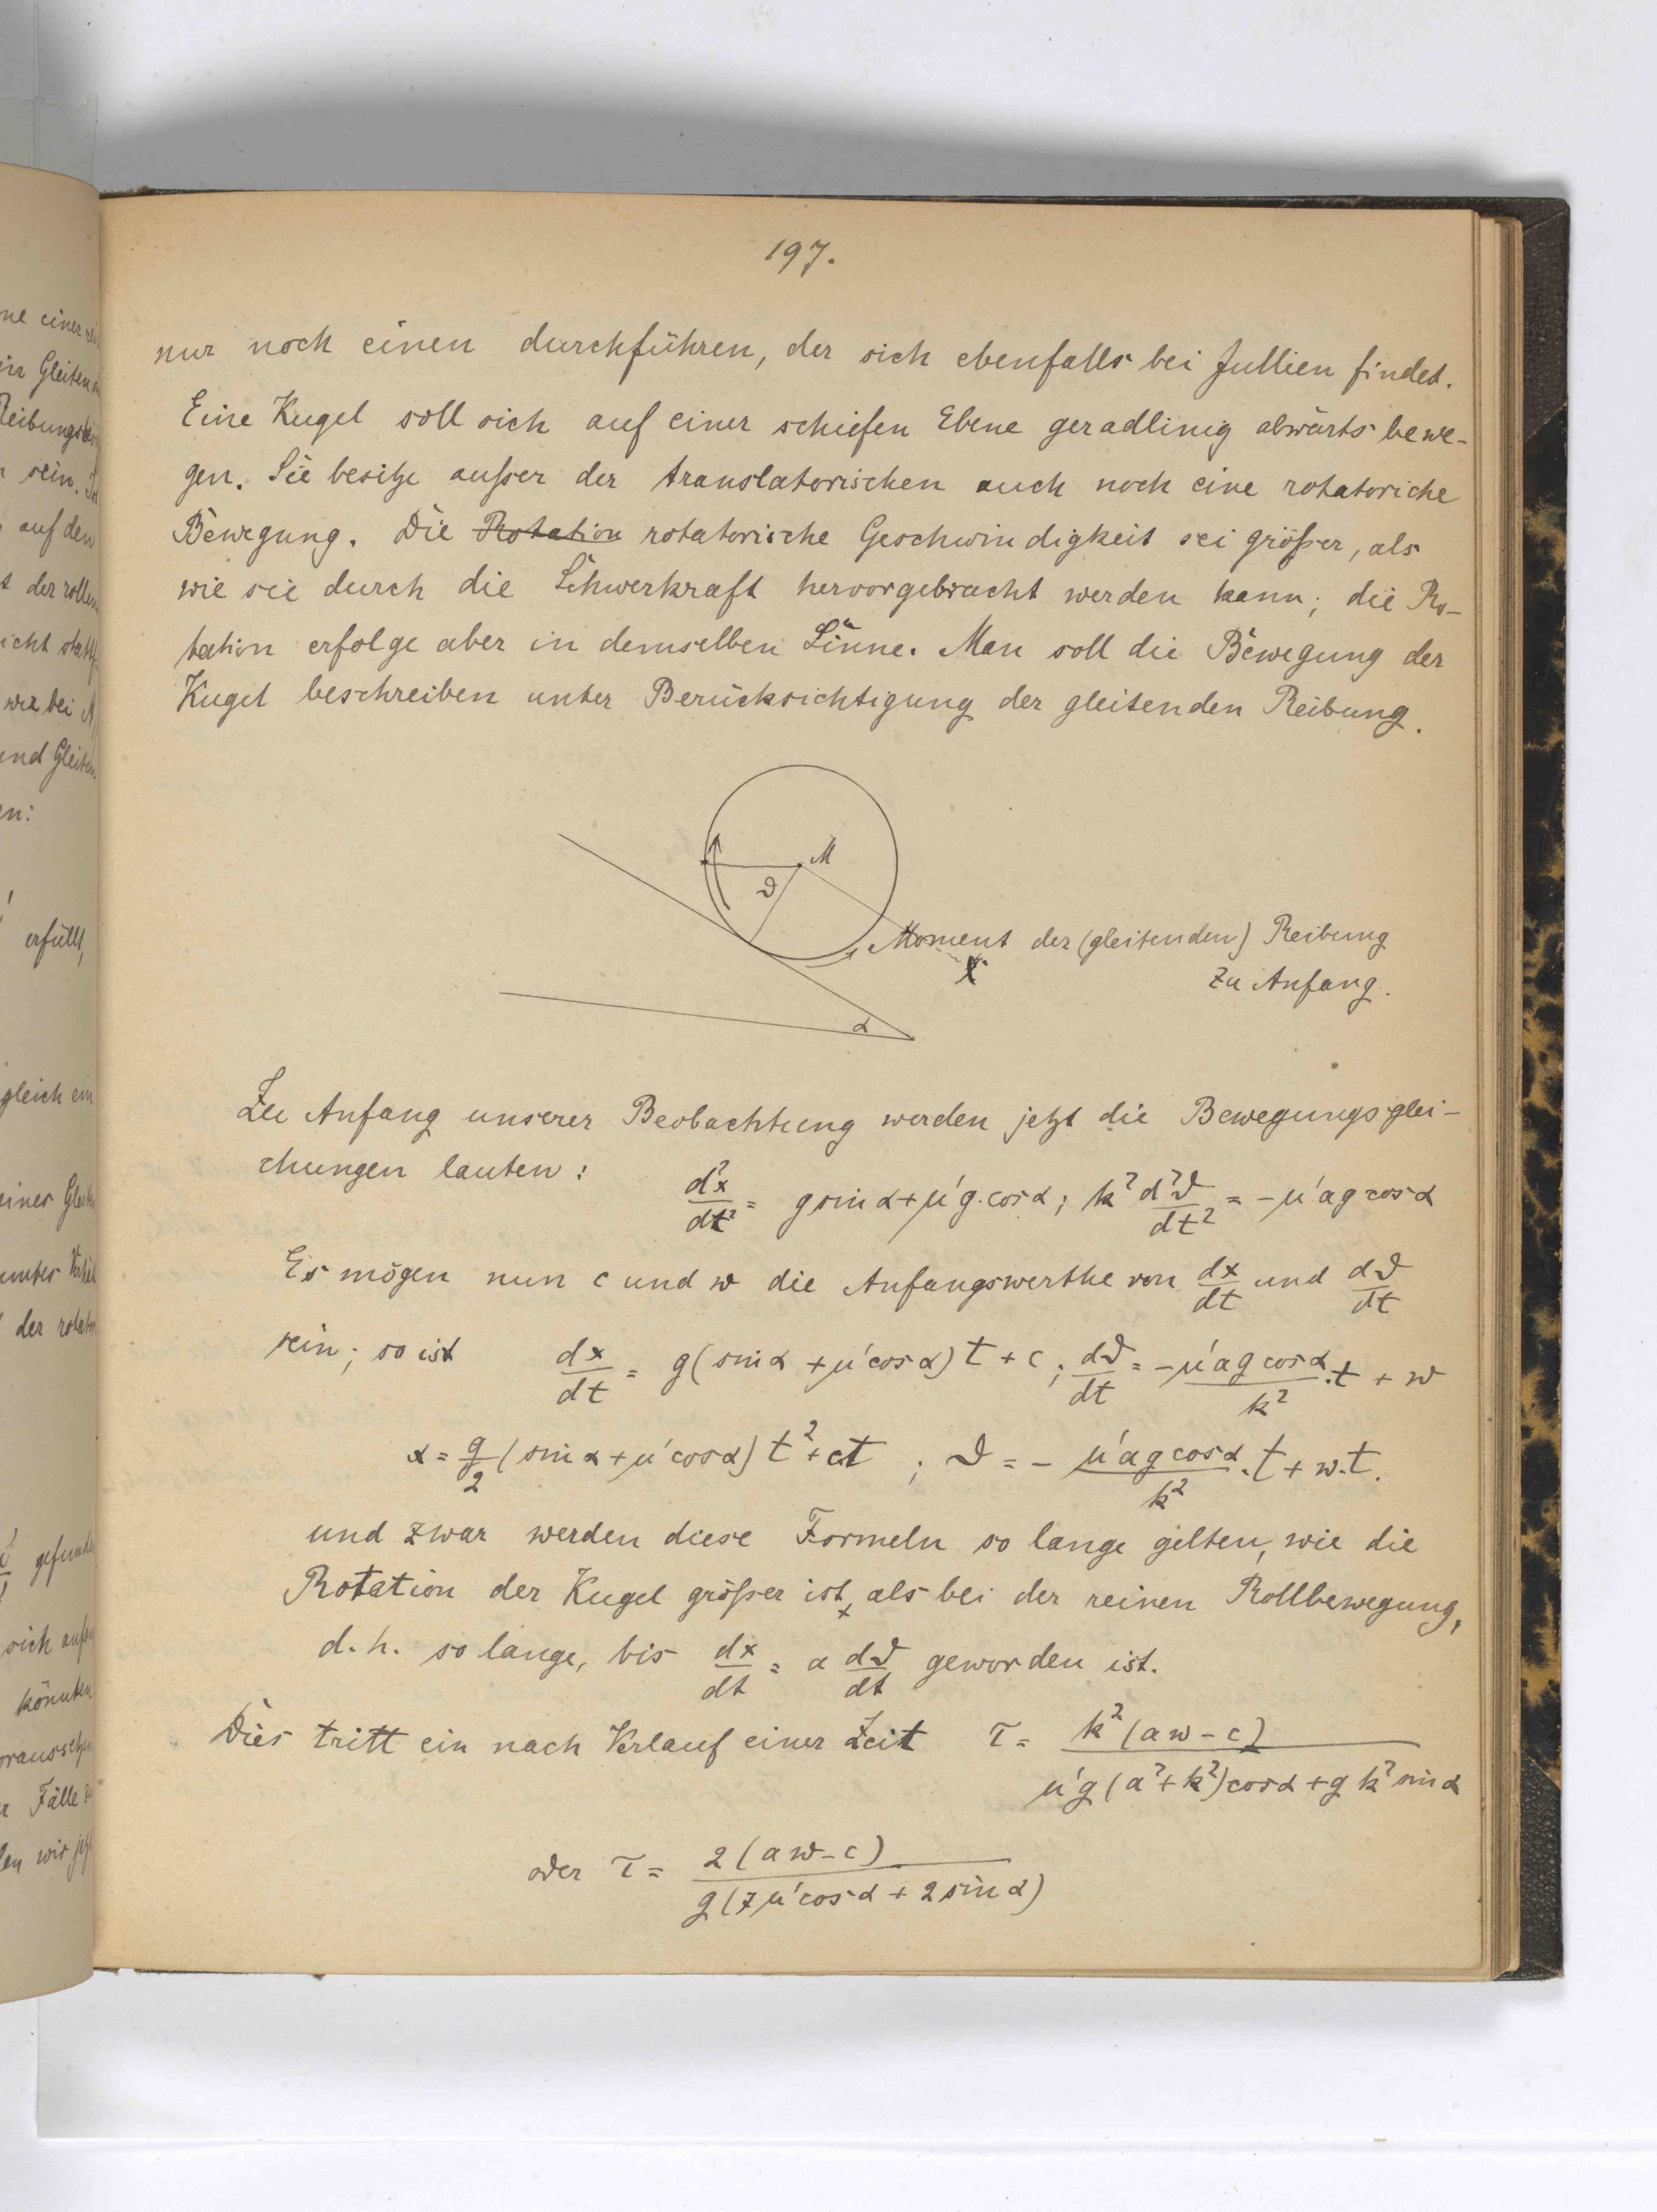 197.
nur noch einen durchführen, der sich ebenfalls bei Jullien findet.
Eine Kugel soll sich auf einer schiefen Ebene geradlinig abwärts bewe-
gen. Sie besitze außer der translatorischen auch noch eine rotatoriche
Bewegung. Die Rotation rotatorische Geschwindigkeit sei größer, als
wie sie durch die Schwerkraft hervorgebracht werden kann; die Ro-
tation erfolge aber in demselben Sinne. Man soll die Bewegung der
Kugel beschreiben unter Berücksichtigung der gleitenden Reibung.
M
ϑ
Moment der (gleitenden) Reibung
x
zu Anfang.
α
Zu Anfang unserer Beobachtung werden jetzt die Bewegungsglei-
chungen lauten:
d²x/dt² = g sin α + μ'g · cos α; k² d²ϑ/dt² = - μ'ag cos α
Es mögen nun c und w die Anfangswerthe von dx/dt und dϑ/dt
sein; so ist dx/dt = g (sin α + μ' cos α) t + c; dϑ/dt = - μ'ag cos α/k² · t + w
x = g/2 (sin α + μ' cos α) t² + ct; ϑ = - μ'ag cos α/k² · t + w·t.
und zwar werden diese Formeln so lange gelten, wie die
Rotation der Kugel größer ist, als bei der reinen Rollbewegung,
d. h. so lange, bis dx/dt = a dϑ/dt geworden ist.
Dies tritt ein nach Verlauf einer Zeit τ = k² (aw - c)/μ'g (a² + k²) cos α + g k² sin α
oder τ = 2 (aw - c)/g (7 μ' cos α + 2 sin α)
ne einer
in Gleiten
sein.
auf den
der rollen
wie bei
und Gleiten
en:
erfüllt,
gleich ein
einer
der
gefunden
sich
könnten
Fälle
wir